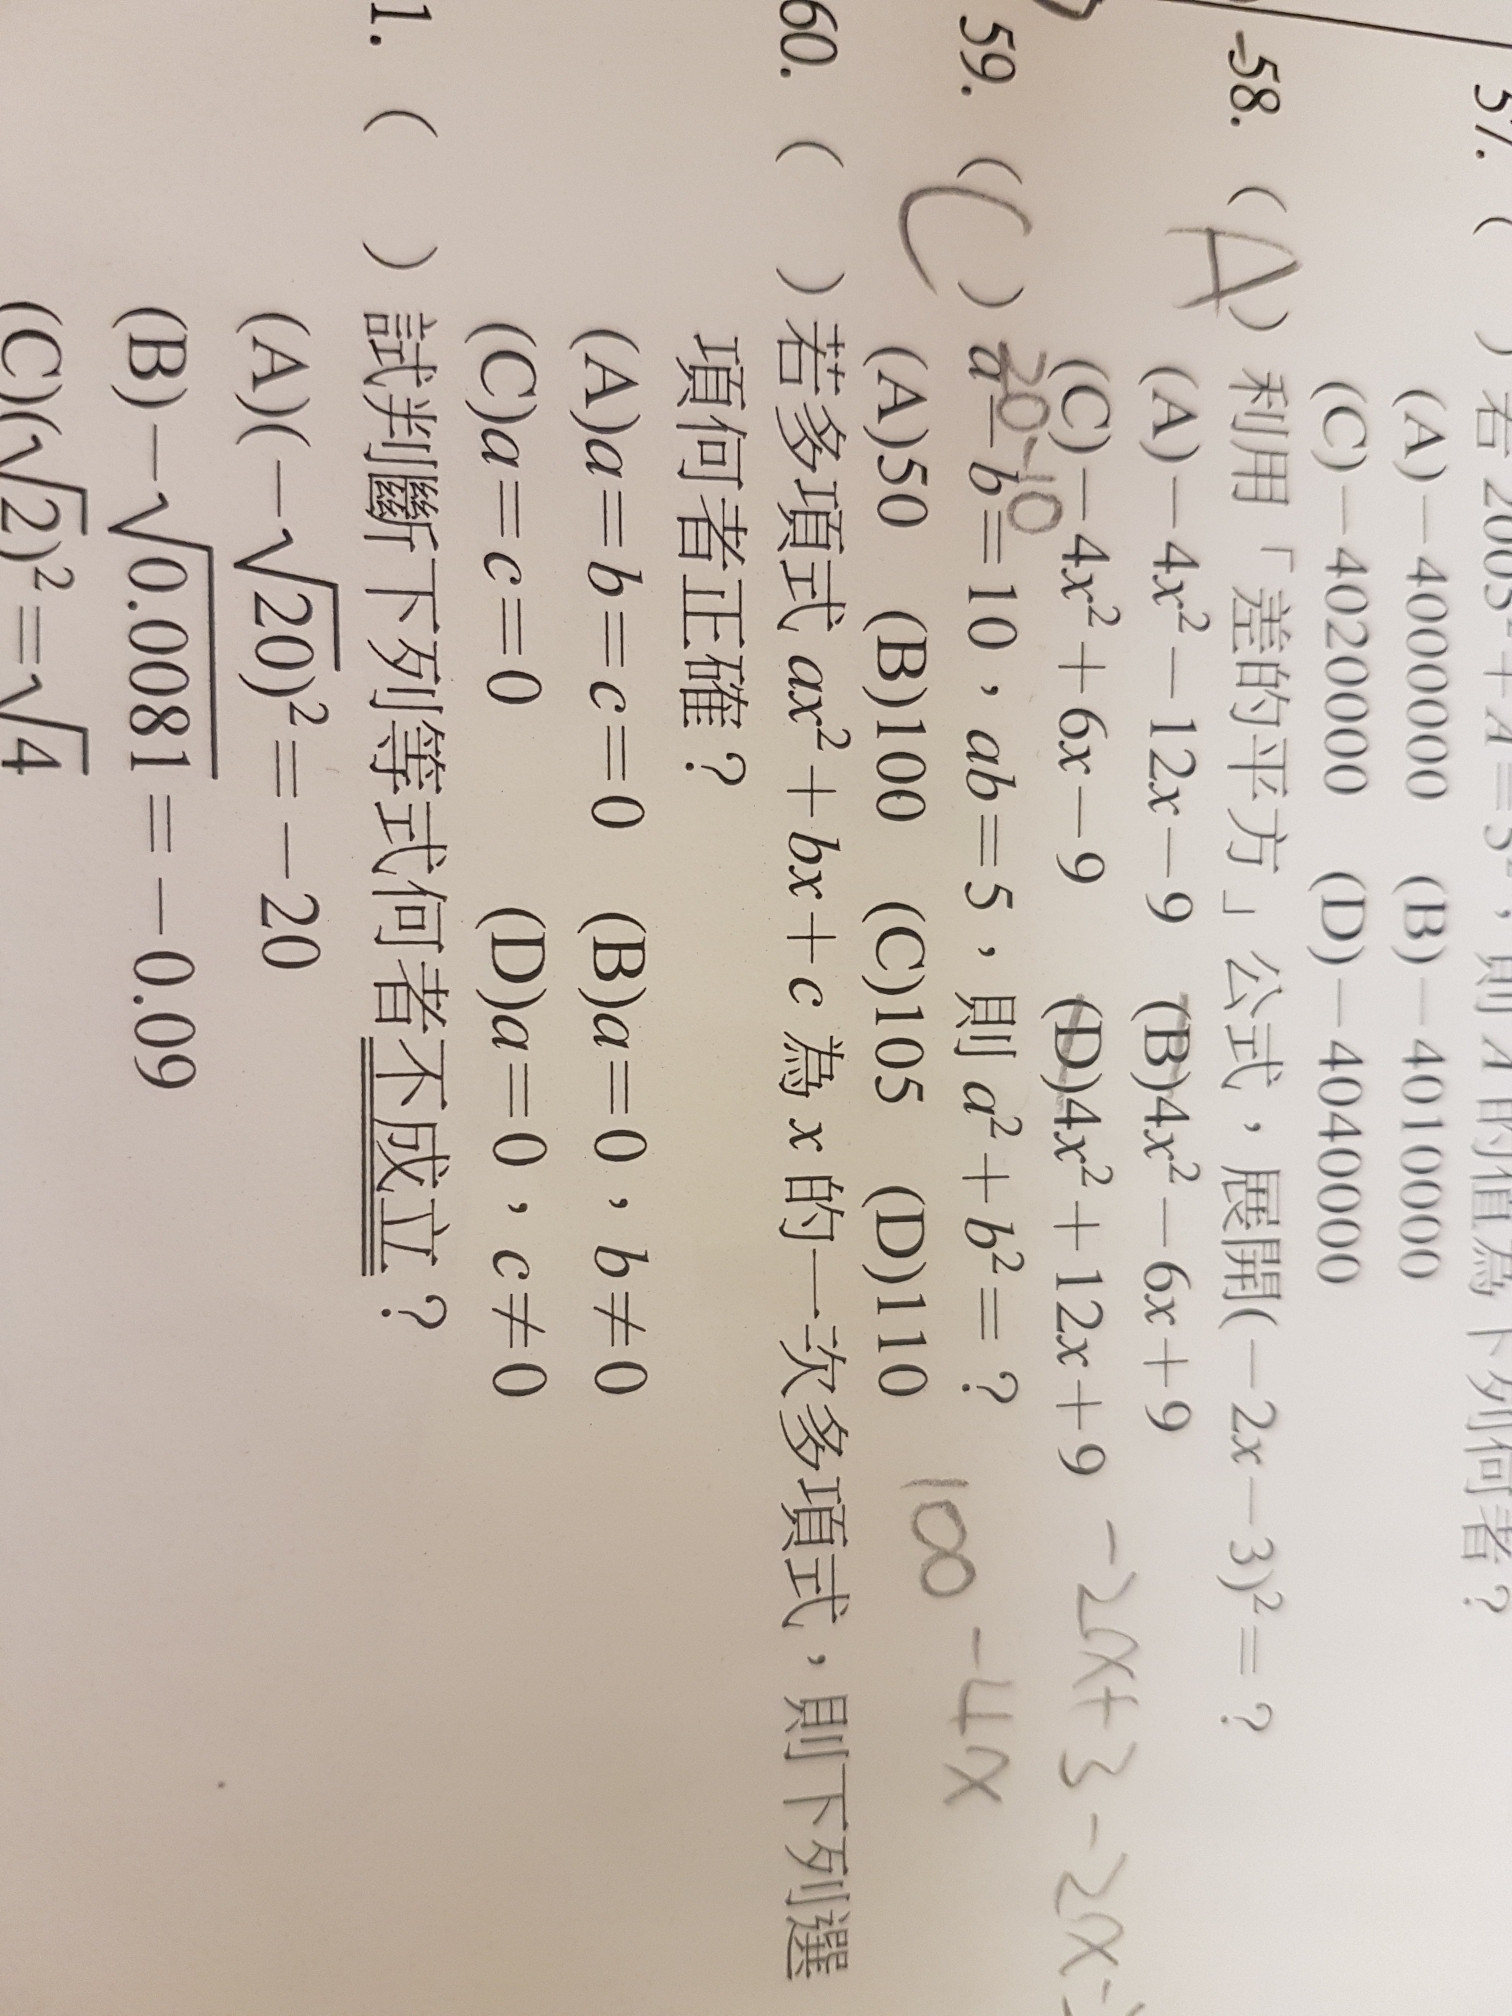 57. ( ) 若 2005²+A=5²，則 A 的值為下列何者？
(A)－4000000 (B)－4010000
(C)－4020000 (D)－4040000
58. (A) 利用「差的平方」公式，展開(－2x－3)²＝？
(A)－4x²－12x－9 (B)4x²－6x＋9
(C)－4x²＋6x－9 (D)4x²＋12x＋9 -2x+3-2x
20-10
-4x
59. (C) a－b＝10，ab＝5，則 a²＋b²＝？
(A)50 (B)100 (C)105 (D)110 100
60. ( ) 若多項式 ax²＋bx＋c 為 x 的一次多項式，則下列選
項何者正確？
(A)a＝b＝c＝0 (B)a＝0，b≠0
(C)a＝c＝0 (D)a＝0，c≠0
1. ( ) 試判斷下列等式何者不成立？
(A)(－√20)²＝－20
(B)－√0.0081＝－0.09
(C)(√2)²＝√4